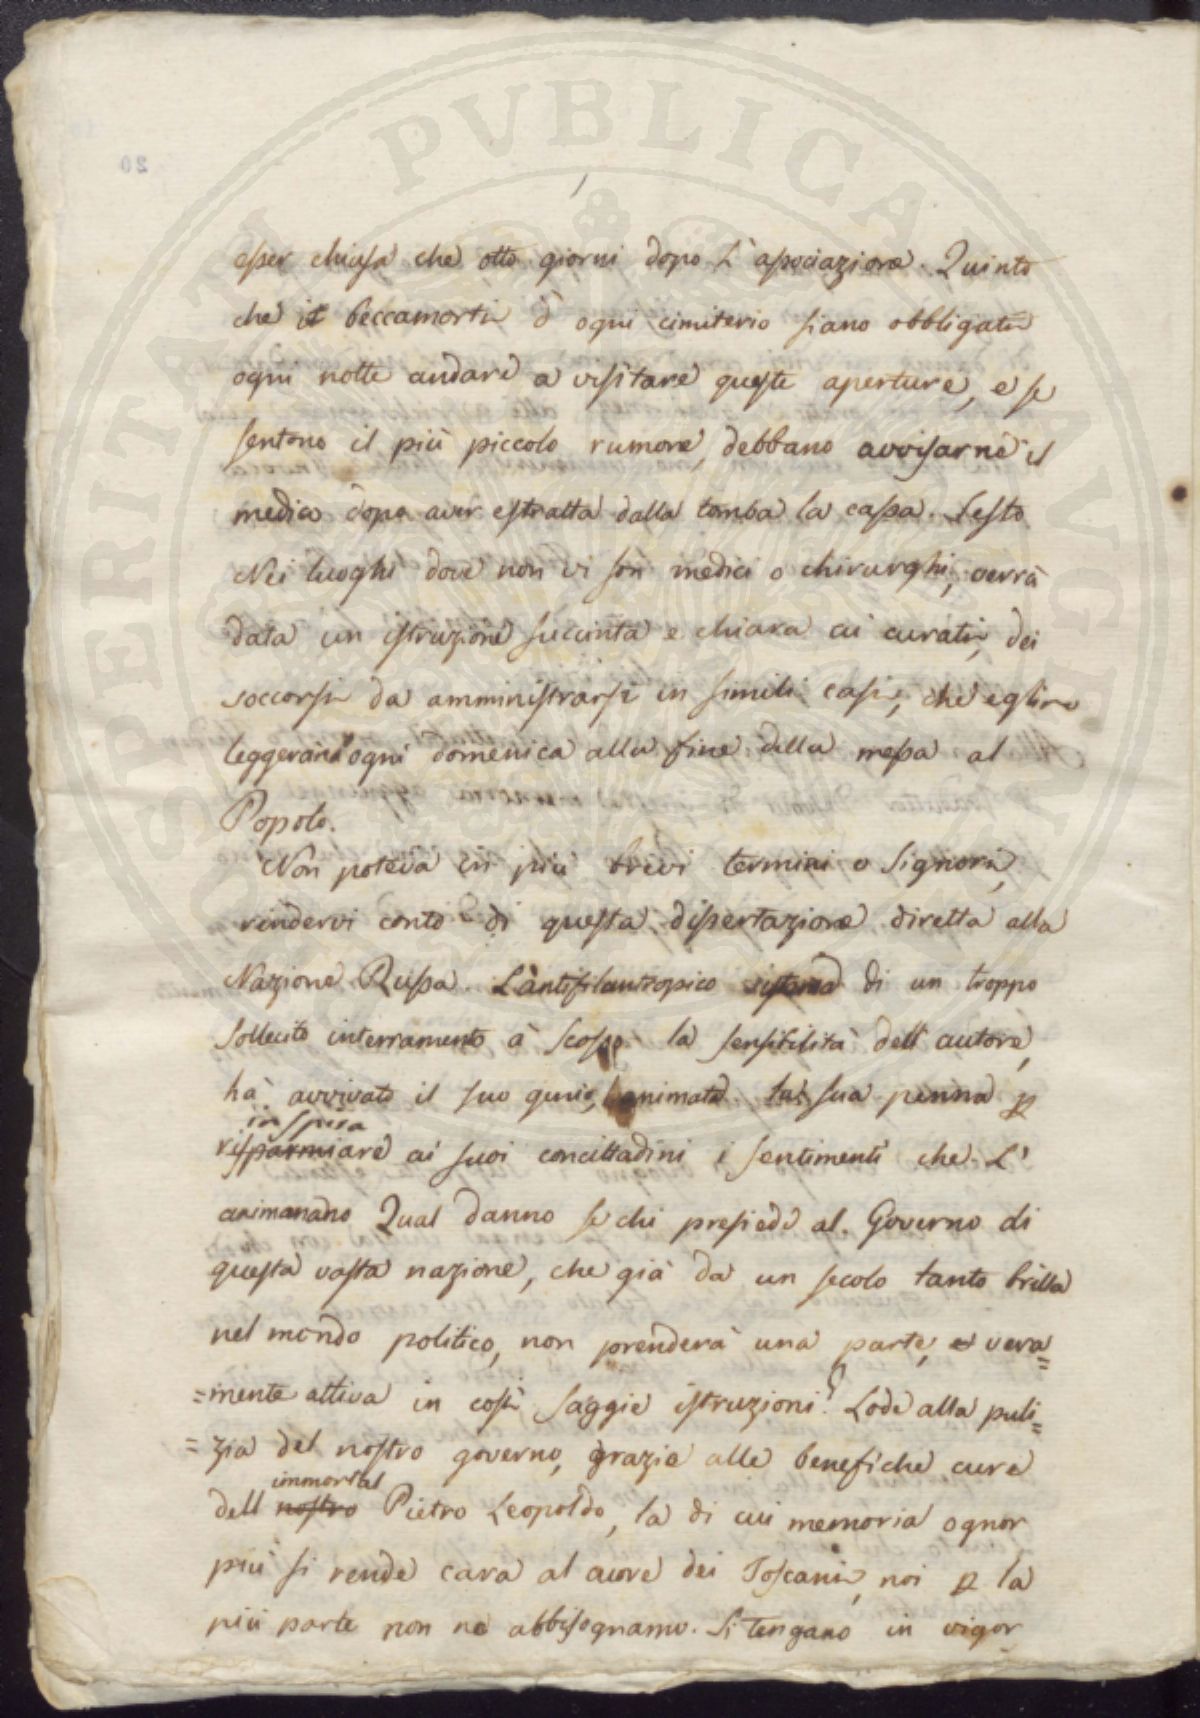 esser chiusa che otto giorni dopo L'associazione. Quinto
che i beccamorti d ogni cimiterio siano obbligati
ogni notte andare a visitare queste aperture, e se
sentono il più piccolo rumore, debbano avvisarne il
medico dopo aver estratta dalla tomba la cassa. Sesto
Nei luoghi dove non vi son medici o chirurghi, verrà
data un istruzione succinta e chiara ai curati, dei
soccorsi da amministrarsi in simili casi, che eglino
leggeranno ogni domenica alla fine della messa al
Popolo.
Non poteva in più brevi termini o Signori,
rendervi conto di questa dissertazione diretta alla
Nazione Russa. L'antifilantropico sistema di un troppo
sollecito interramento à scosso la sensibilità dell'autore,
hà avvivato il suo genio, animata la sua penna p
inspira
risparmiare ai suoi concittadini i sentimenti che L'
animanano Qual danno se chi presiede al Governo di
questa vasta nazione, che già da un secolo tanto brilla
nel mondo politico, non prenderà una parte, vera=
=mente attiva in così saggie istruzioni? Lode alla puli=
=zia del nostro governo, grazie alle benefiche cure
immortal
dell nostro Pietro Leopoldo, la di cui memoria ognor
più si rende cara al cuore dei Toscani, noi p la
più parte non ne abbisognamo. Si tengano in vigor
20
SPERITATI PUBLICAE AUGENDAE